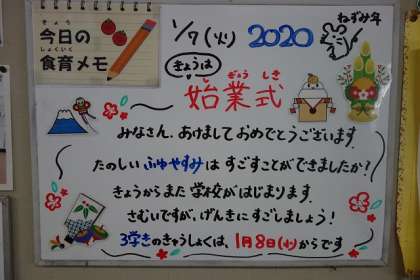 きょう
今日の
しょくいく
食育メモ
1/7(火) 2020
ねずみ年
きょうは
しぎょうしき
始業式
みなさん、あけましておめでとうございます。
たのしいふゆやすみはすごすことができましたか?
きょうからまた学校がはじまります。
さむいですが、げんきにすごしましょう!
3学きのきゅうしょくは、1月8日(水)からです